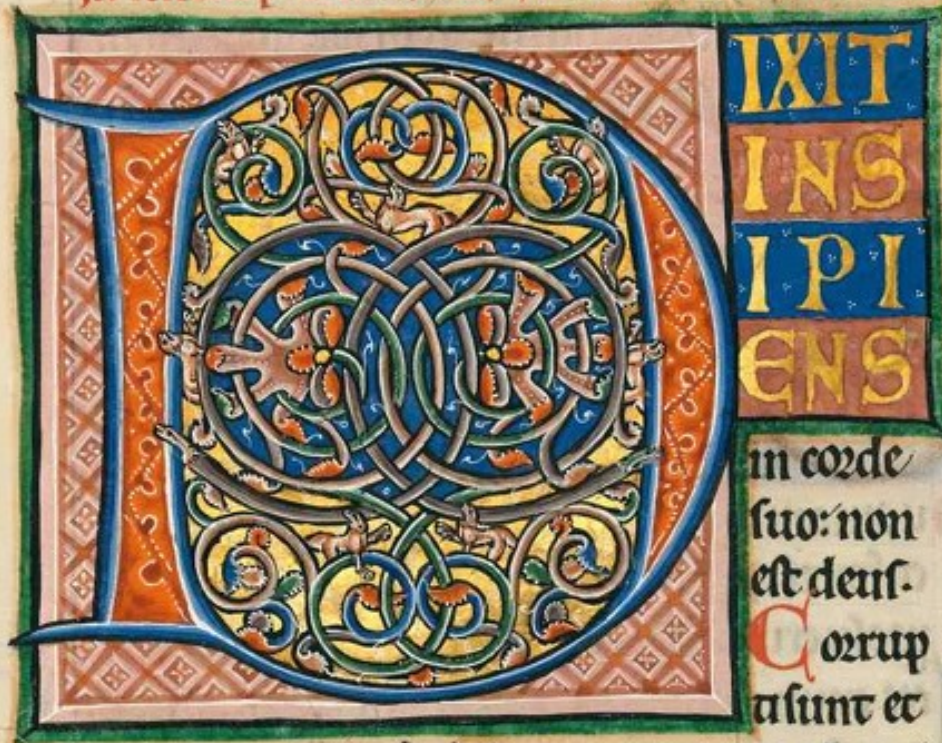 D
IXIT
INS
IPI
ENS
in corde
suo: non
est deus.
Corrup
ti sunt et